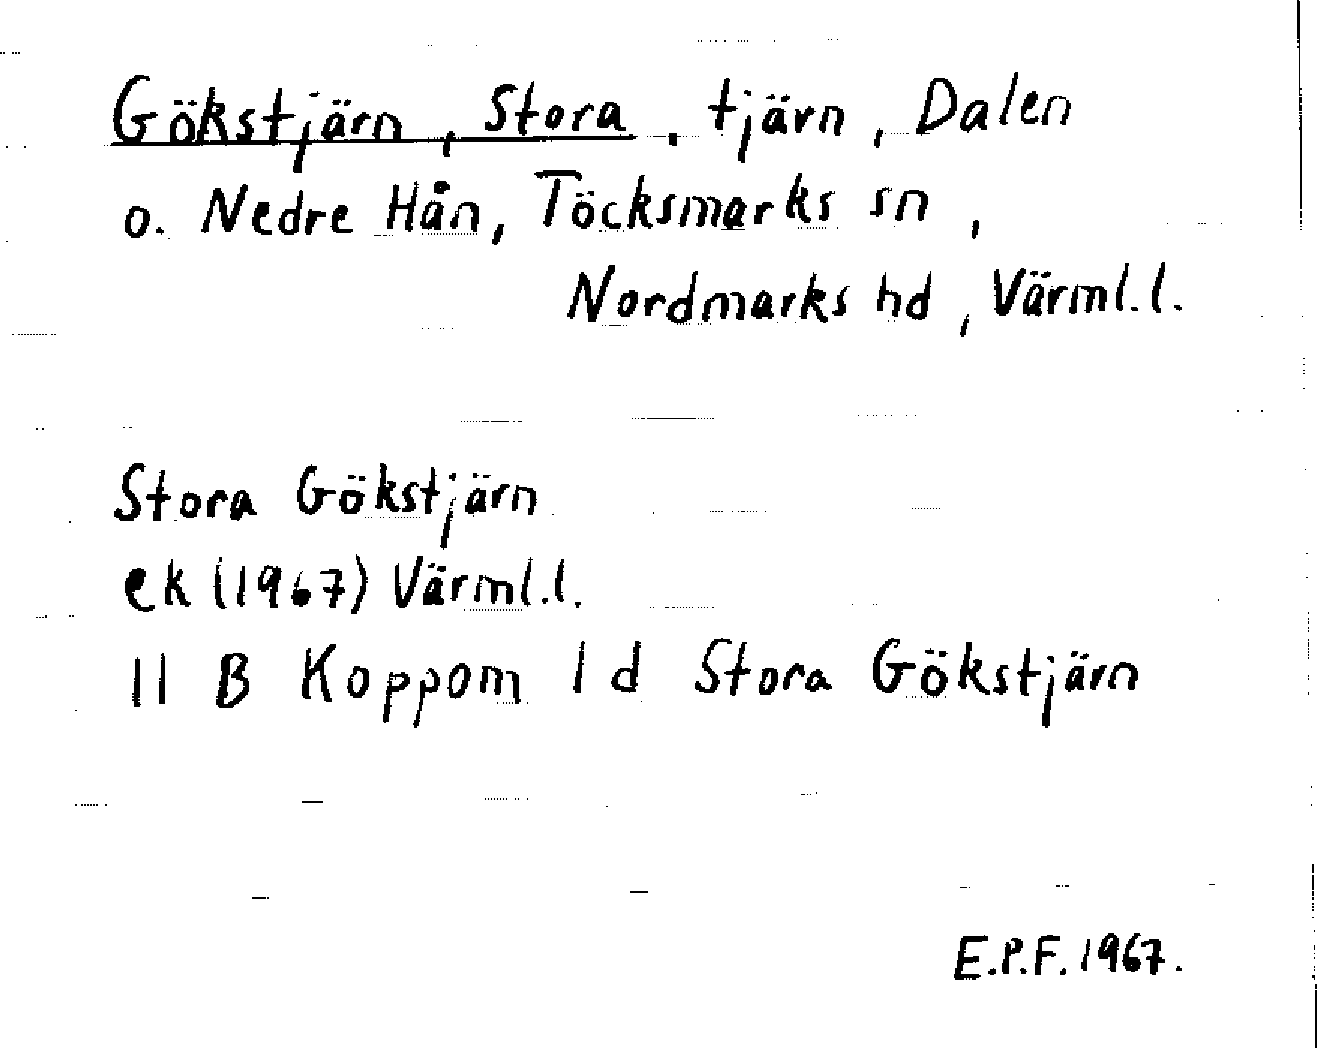 Gökstjärn, Stora, tjärn, Dalen
o. Nedre Hån, Töcksmarks sn,
Nordmarks hd, Värml.l.
Stora Gökstjärn
ek (1967) Värml.l.
11 B Koppom 1 d Stora Gökstjärn
E.P.F. 1967.